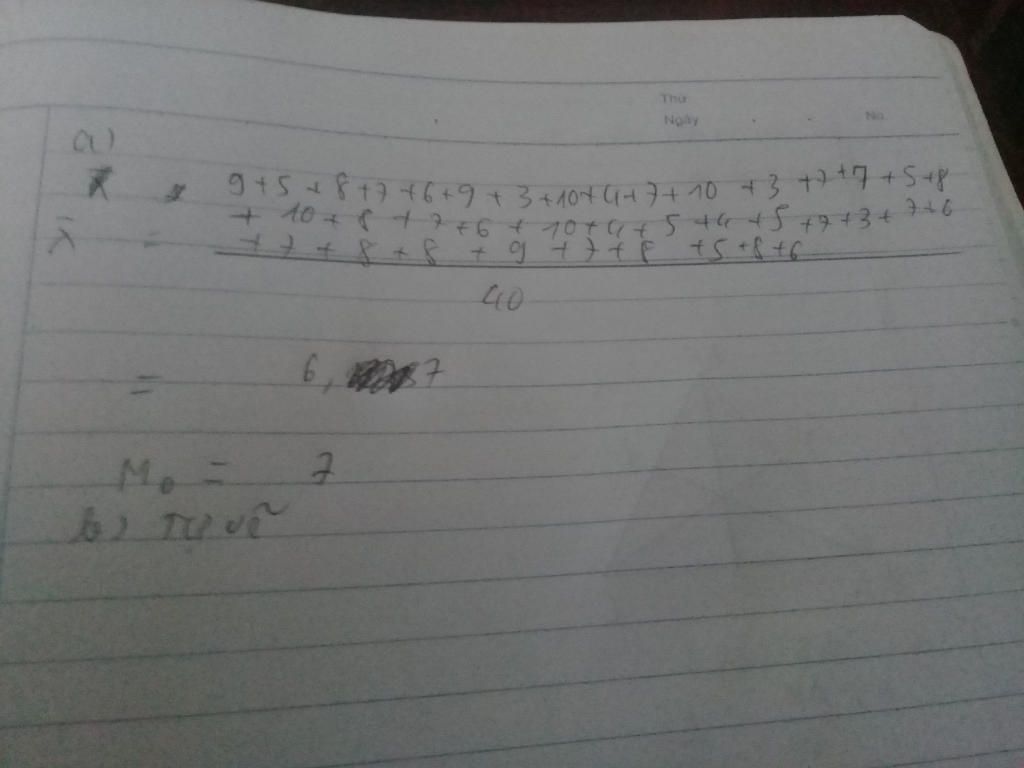 Thứ
Ngày No
a)
9+5+8+7+6+9+3+10+4+7+10+3+7+7+5+8
+10+8+7+6+10+4+5+4+5+7+3+7+6
X̄ = +7+8+8+9+7+8+5+8+6
40
= 6,7
M₀ = 7
b) Tự vẽ